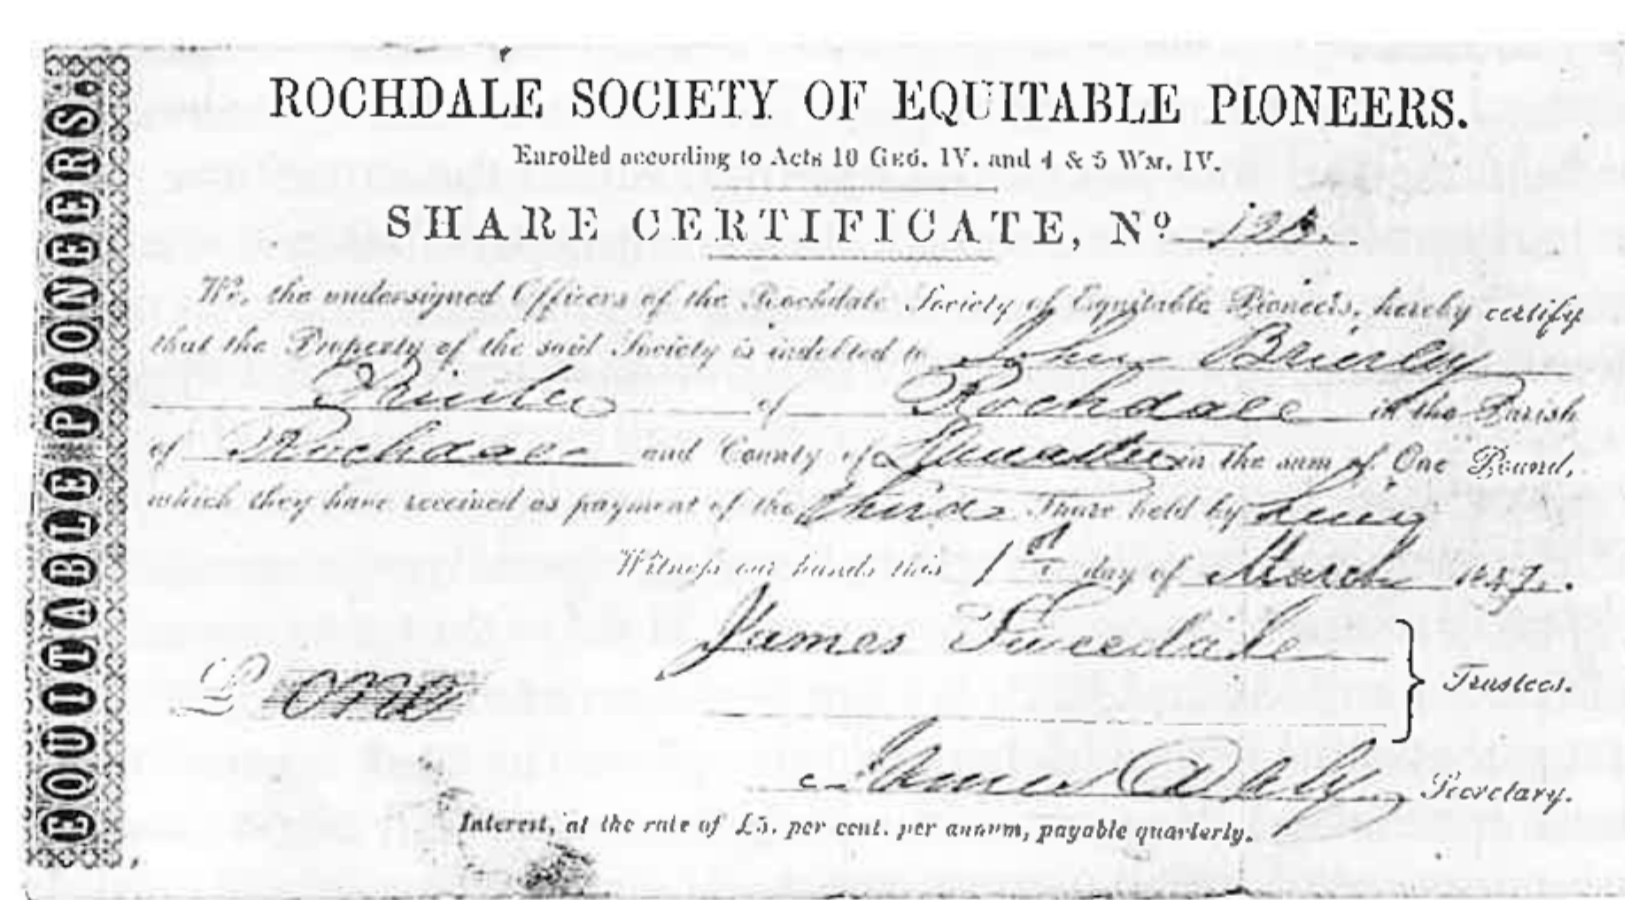 EQUITABLE PIONEERS.
ROCHDALE SOCIETY OF EQUITABLE PIONEERS.
Enrolled according to Acts 10 GEO. IV. and 4 & 5 WM. IV.
SHARE CERTIFICATE, Nº
We, the undersigned Officers of the Rochdale Society of Equitable Pioneers, hereby certify
that the Property of the said Society is indebted to John Brierley
of Rochdale in the Parish
of Rochdale and County of Lancaster in the sum of One Pound,
which they have received as payment of the third Share held by him
Witness our hands this 1st day of March 1847.
James Tweedale
Trustees.
£ one
James Daly Secretary.
Interest, at the rate of £5. per cent. per annum, payable quarterly.